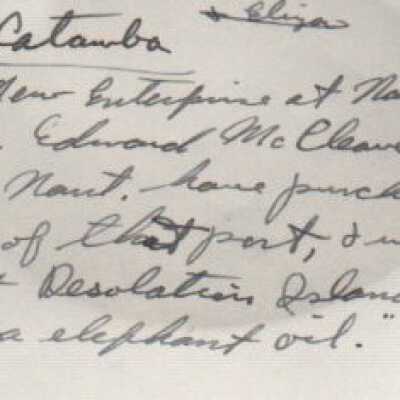 & Eliza
Catawba
New Enterprise at Na
. Edward McCleave
Nant. have purch
of that port, &
Desolation Island
a elephant oil."